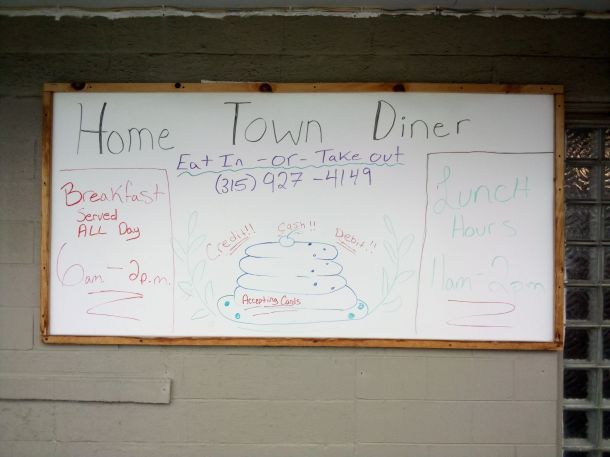 Home Town Diner
Eat In -or- Take out
(315) 927-4149
Breakfast
Served
ALL Day
6am-2p.m.
Credit!! Cash!! Debit!!
Accepting Cards
Lunch
Hours
11am-2pm